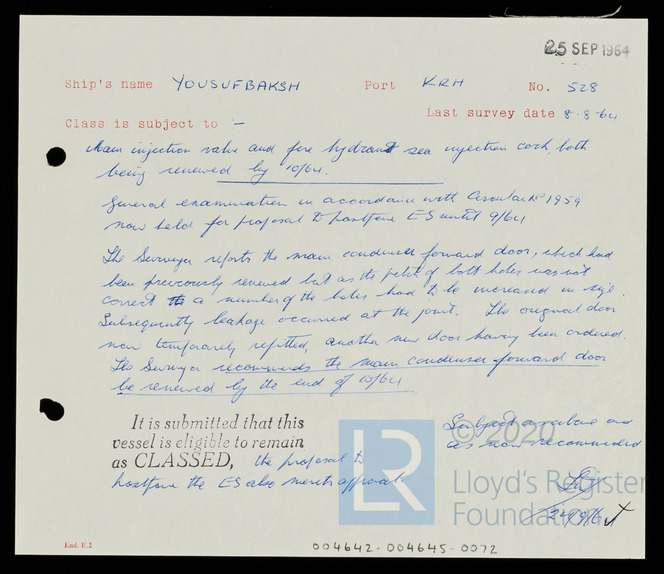 25 SEP 1964
Ship's name YOUSUFBAKSH Port KRH No. 528
Last survey date 8-8-64
Class is subject to :-
Main injection valve and fire hydrant sea injection cock both
being renewed by 10/64.
General examination in accordance with Circular No 1959
now held for proposal to postpone ES until 9/64
The Surveyor reports the main condenser forward door, which had
been previously renewed but as the pitch of bolt holes was not
correct a number of the holes had to be increased in size.
Subsequently leakage occurred at the joint. The original door
now temporarily refitted, another new door having been ordered.
The Surveyor recommends the main condenser forward door
be renewed by the end of 10/64
It is submitted that this
vessel is eligible to remain
as CLASSED, the proposal to
postpone the ES also merits approval
Subject as above and
as now recommended
LR
© 2020
Lloyd's Register
Foundation
End. E.2
004642-004645-0072